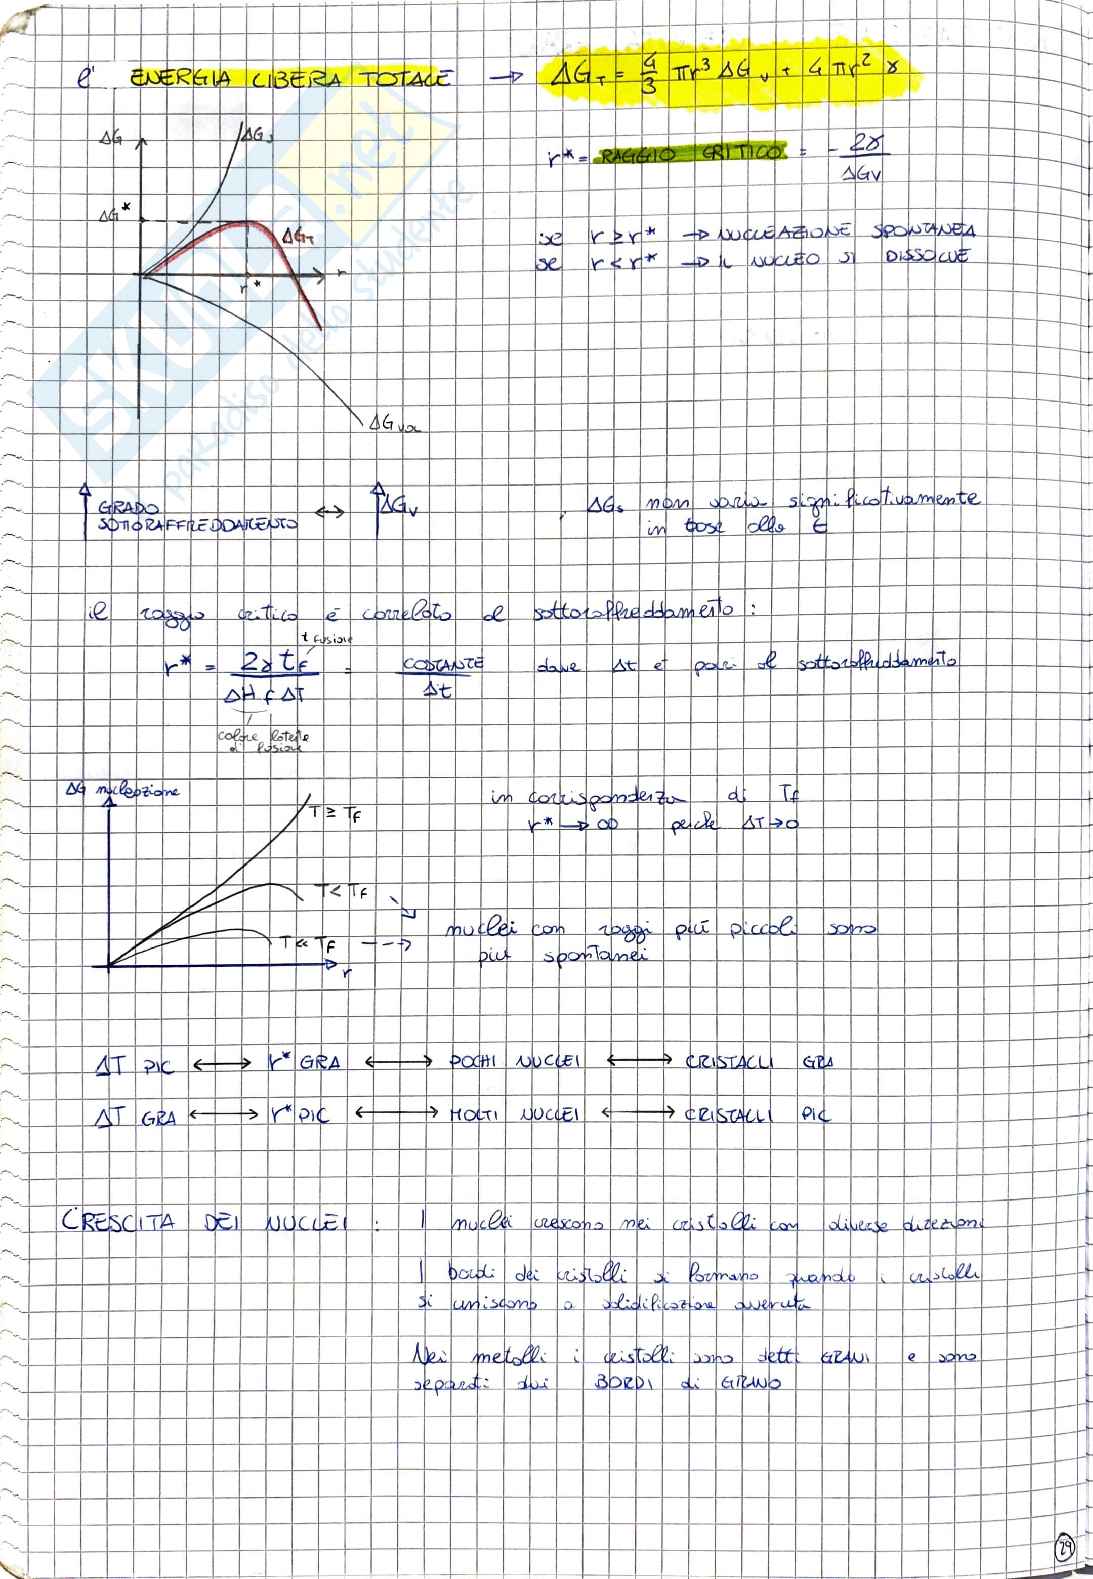 l' ENERGIA LIBERA TOTALE → ΔG_T = 4/3 πr³ ΔG_v + 4πr² γ
ΔG
ΔG_s
r* = RAGGIO CRITICO = - 2γ/ΔG_V
ΔG*
ΔG_T
r
r*
se r ≥ r* → NUCLEAZIONE SPONTANEA
se r < r* → IL NUCLEO SI DISSOLVE
ΔG_vol
SKUOLA.net
il paradiso dello studente
↑ GRADO SOTTORAFFREDDAMENTO ↔ ↑ ΔG_v , ΔG_s non varia significativamente
in base alla t
il raggio critico è correlato al sottoraffreddamento :
t fusione
r* = 2γ t_F / ΔH_f ΔT = COSTANTE / Δt dove Δt è pari al sottoraffreddamento
calore latente
di fusione
ΔG nucleazione
T ≥ T_F
in corrispondenza di T_f
r* → ∞ perché ΔT→0
T < T_F
T << T_F
nuclei con raggi più piccoli sono
più spontanei
r
ΔT PIC ↔ r* GRA ↔ POCHI NUCLEI ↔ CRISTALLI GRA
ΔT GRA ↔ r* PIC ↔ MOLTI NUCLEI ↔ CRISTALLI PIC
CRESCITA DEI NUCLEI : I nuclei crescono nei cristalli con diverse direzioni
I bordi dei cristalli si formano quando i cristalli
si uniscono a solidificazione avvenuta
Nei metalli i cristalli sono detti GRANI e sono
separati dai BORDI di GRANO
29